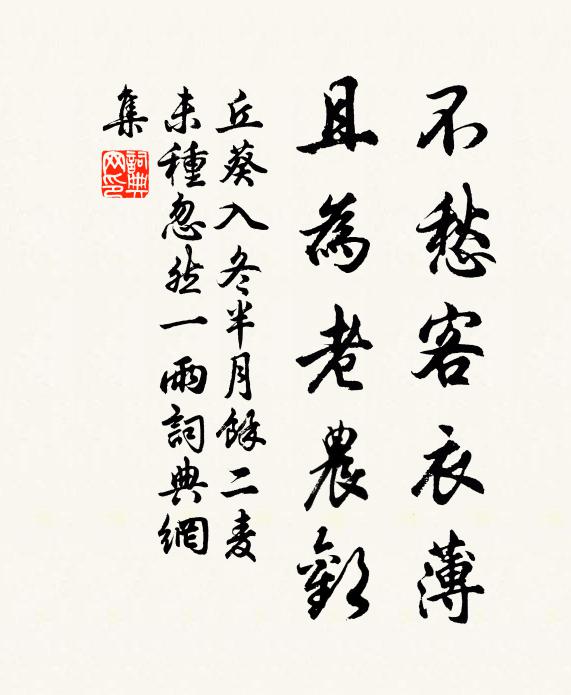 不愁客衣薄
且為老農歡
丘葵入冬半月餘二麦
未種忽然一雨詞典網
集
詞典网印